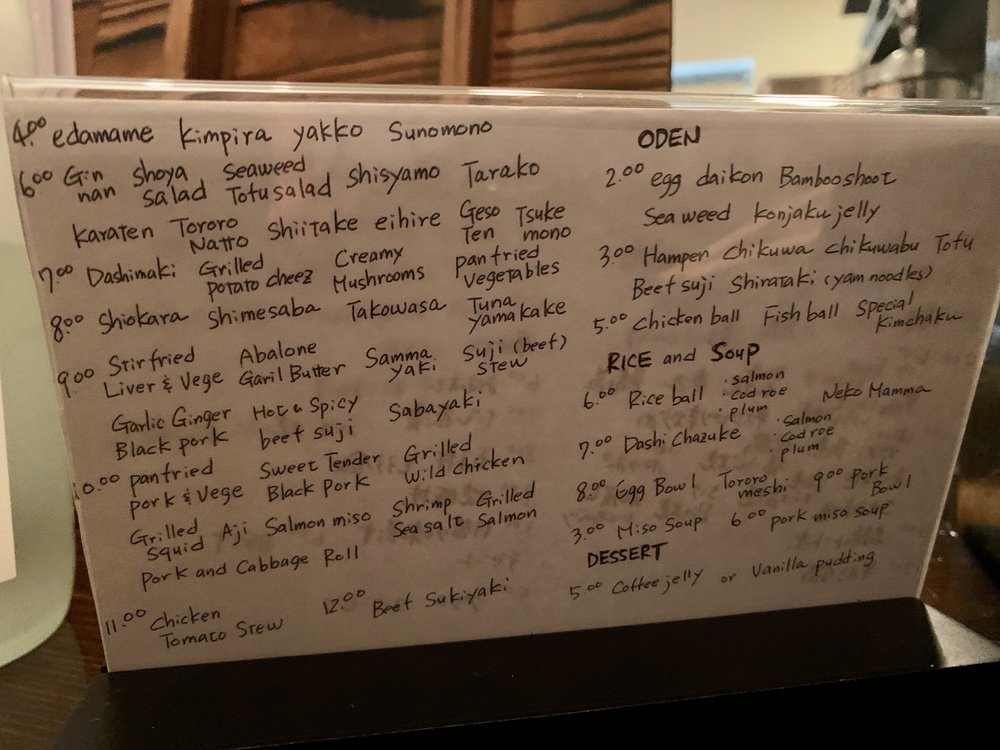 4.00 edamame kimpira yakko Sunomono
6.00 Gin Shoya Seaweed Shisyamo Tarako
nan Salad Tofu salad
Karaten Tororo Shiitake eihire Geso Tsuke
Natto Ten mono
7.00 Dashimaki Grilled Creamy panfried
potato cheez Mushrooms vegetables
8.00 Shiokara Shimesaba Takowasa Tuna
yamakake
9.00 Stir fried Abalone Samma Suji (beef)
Liver & Vege Garil Butter yaki Stew
Garlic Ginger Hot & Spicy Sabayaki
Black pork beef suji
10.00 panfried Sweet Tender Grilled
pork & Vege Black Pork Wild Chicken
Grilled Aji Salmon miso Shrimp Grilled
Squid Sea salt Salmon
Pork and Cabbage Roll
11.00 Chicken 12.00 Beef Sukiyaki
Tomato Stew
ODEN
2.00 egg daikon Bamboo shoot
Sea weed konjaku jelly
3.00 Hampen Chikuwa chikuwabu Tofu
Beef suji Shirataki (yam noodles)
5.00 Chicken ball Fish ball Special
Kimchaku
RICE and SOUP
6.00 Rice ball · salmon Neko Mamma
· Cod roe
· plum
7.00 Dashi Chazuke · Salmon
· Cod roe
· plum
8.00 Egg Bowl Tororo 9.00 Pork
meshi Bowl
3.00 Miso Soup 6.00 pork miso soup
DESSERT
5.00 Coffee jelly or Vanilla pudding